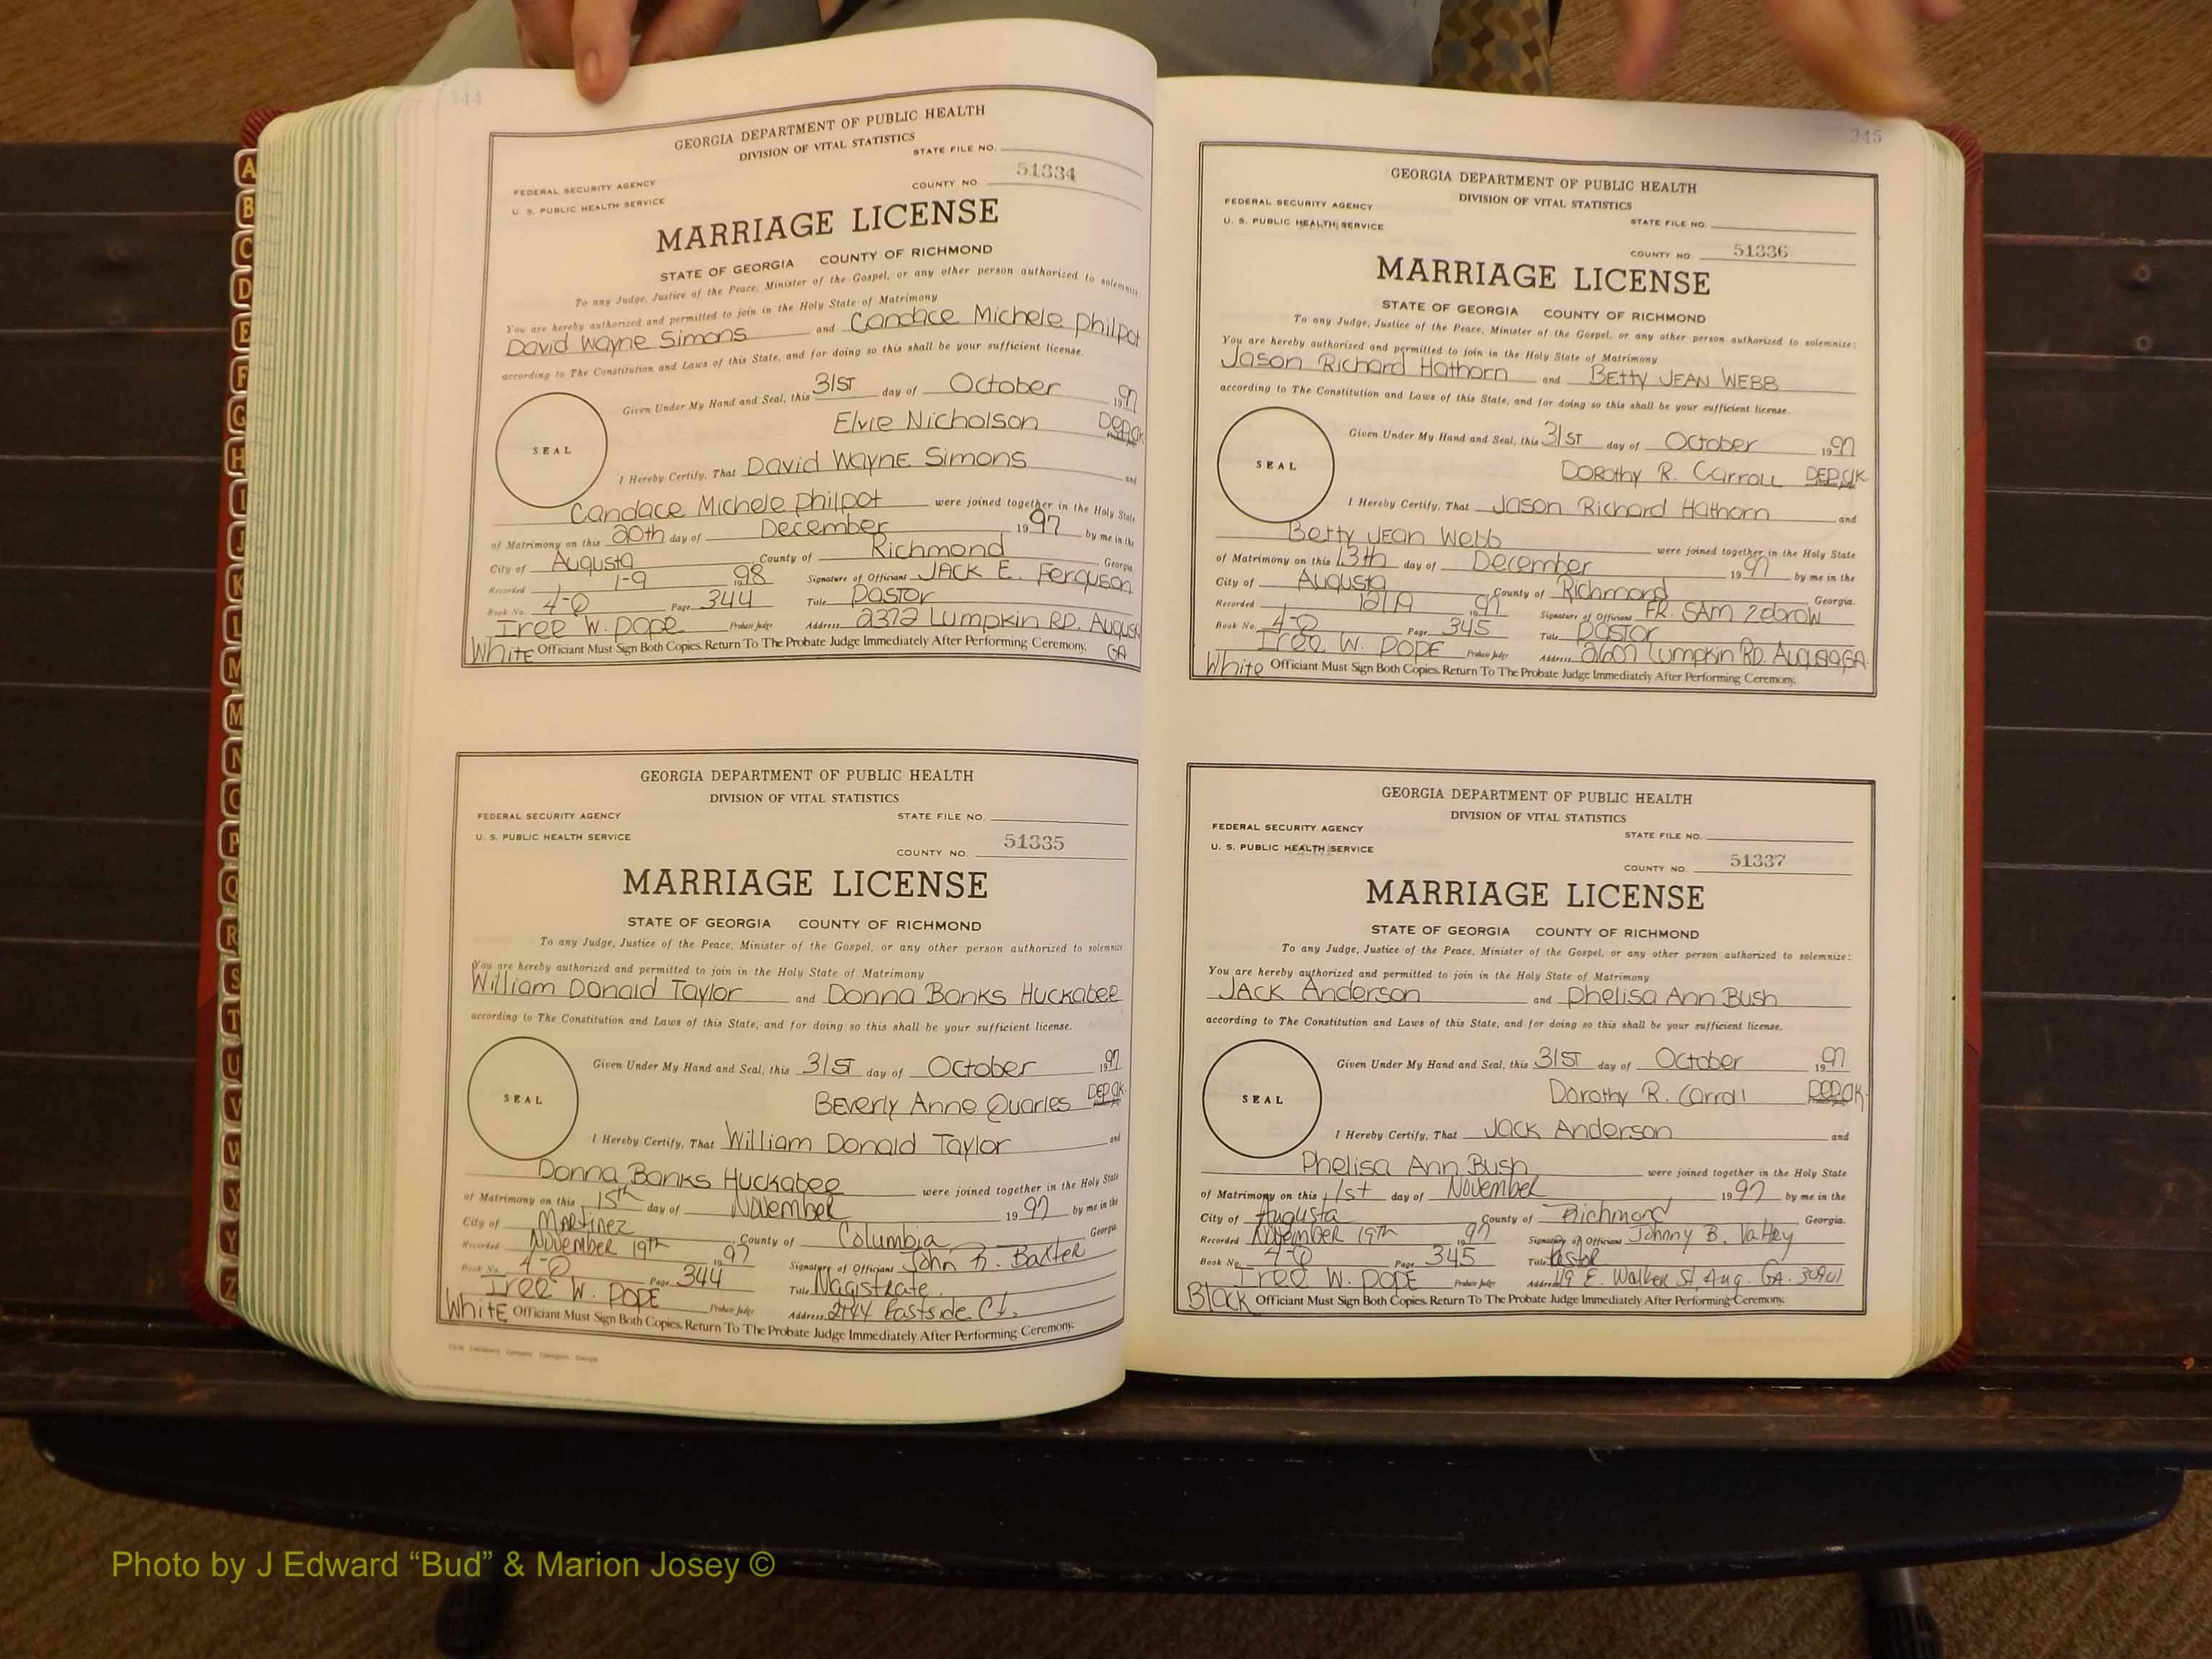 344
GEORGIA DEPARTMENT OF PUBLIC HEALTH
DIVISION OF VITAL STATISTICS
STATE FILE NO.
FEDERAL SECURITY AGENCY
U. S. PUBLIC HEALTH SERVICE
COUNTY NO. 51334
MARRIAGE LICENSE
STATE OF GEORGIA COUNTY OF RICHMOND
To any Judge, Justice of the Peace, Minister of the Gospel, or any other person authorized to solemnize:
You are hereby authorized and permitted to join in the Holy State of Matrimony
David Wayne Simons and Candace Michele Philpot
according to The Constitution and Laws of this State, and for doing so this shall be your sufficient license.
Given Under My Hand and Seal, this 31ST day of October 1997
Elvie Nicholson DEP.CK
SEAL
I Hereby Certify, That David Wayne Simons and
Candace Michele Philpot were joined together in the Holy State
of Matrimony on this 20th day of December 1997 by me in the
City of Augusta County of Richmond, Georgia.
Recorded 1-9 1998 Signature of Officiant JACK E. Ferguson
Book No. 4-Q Page 344 Title Pastor
Iree W. Pope Probate Judge Address 2372 Lumpkin RD. Augusta
GA
White Officiant Must Sign Both Copies. Return To The Probate Judge Immediately After Performing Ceremony.
GEORGIA DEPARTMENT OF PUBLIC HEALTH
DIVISION OF VITAL STATISTICS
FEDERAL SECURITY AGENCY
STATE FILE NO.
U. S. PUBLIC HEALTH SERVICE
COUNTY NO. 51335
MARRIAGE LICENSE
STATE OF GEORGIA COUNTY OF RICHMOND
To any Judge, Justice of the Peace, Minister of the Gospel, or any other person authorized to solemnize
You are hereby authorized and permitted to join in the Holy State of Matrimony
William Donald Taylor and Donna Banks Huckabee
according to The Constitution and Laws of this State, and for doing so this shall be your sufficient license.
Given Under My Hand and Seal, this 31ST day of October 1997
Beverly Anne Quarles DEP.CK.
SEAL
I Hereby Certify, That William Donald Taylor and
Donna Banks Huckabee were joined together in the Holy State
of Matrimony on this 15th day of November 1997 by me in the
City of Martinez County of Columbia, Georgia
Recorded November 19th 1997 Signature of Officiant John R. Baxter
Book No. 4-Q Page 344 Title Magistrate
Iree W. POPE Probate Judge Address 2744 Eastside Ct.
White Officiant Must Sign Both Copies. Return To The Probate Judge Immediately After Performing Ceremony.
345
GEORGIA DEPARTMENT OF PUBLIC HEALTH
DIVISION OF VITAL STATISTICS
FEDERAL SECURITY AGENCY
STATE FILE NO.
U. S. PUBLIC HEALTH SERVICE
COUNTY NO. 51336
MARRIAGE LICENSE
STATE OF GEORGIA COUNTY OF RICHMOND
To any Judge, Justice of the Peace, Minister of the Gospel, or any other person authorized to solemnize:
You are hereby authorized and permitted to join in the Holy State of Matrimony
Jason Richard Hathorn and BETTY JEAN WEBB
according to The Constitution and Laws of this State, and for doing so this shall be your sufficient license.
Given Under My Hand and Seal, this 31ST day of October 1997
DOROTHY R. CARROLL DEP.CK.
SEAL
I Hereby Certify, That Jason Richard Hathorn and
Betty JEAN Webb were joined together in the Holy State
of Matrimony on this 13th day of December 1997 by me in the
City of Augusta, County of Richmond Georgia.
Recorded 12/19 1997 Signature of Officiant FR. SAM ZEBROW
Book No. 4-Q Page 345 Title Pastor
Iree W. POPE Probate Judge Address 2607 Lumpkin RD. AUGUSTA, GA.
White Officiant Must Sign Both Copies. Return To The Probate Judge Immediately After Performing Ceremony.
GEORGIA DEPARTMENT OF PUBLIC HEALTH
DIVISION OF VITAL STATISTICS
FEDERAL SECURITY AGENCY
STATE FILE NO.
U. S. PUBLIC HEALTH SERVICE
COUNTY NO. 51337
MARRIAGE LICENSE
STATE OF GEORGIA COUNTY OF RICHMOND
To any Judge, Justice of the Peace, Minister of the Gospel, or any other person authorized to solemnize:
You are hereby authorized and permitted to join in the Holy State of Matrimony
JACK Anderson and Phelisa Ann Bush
according to The Constitution and Laws of this State, and for doing so this shall be your sufficient license.
Given Under My Hand and Seal, this 31ST day of October 1997
Dorothy R. Carroll DEP.CK.
SEAL
I Hereby Certify, That Jack Anderson and
Phelisa Ann Bush were joined together in the Holy State
of Matrimony on this 1st day of November 1997 by me in the
City of Augusta County of Richmond Georgia.
Recorded November 19th 1997 Signature of Officiant Johnny B.
Book No. 4-Q Page 345 Title Pastor
Iree W. POPE Probate Judge Address 119 E. Walker St, Aug. GA. 30901
Black Officiant Must Sign Both Copies. Return To The Probate Judge Immediately After Performing Ceremony.
A
B
C
D
E
F
G
H
I
J
K
L
M
M
N
O
P
Q
R
S
T
U
V
W
X
Y
Z
Photo by J Edward “Bud” & Marion Josey ©